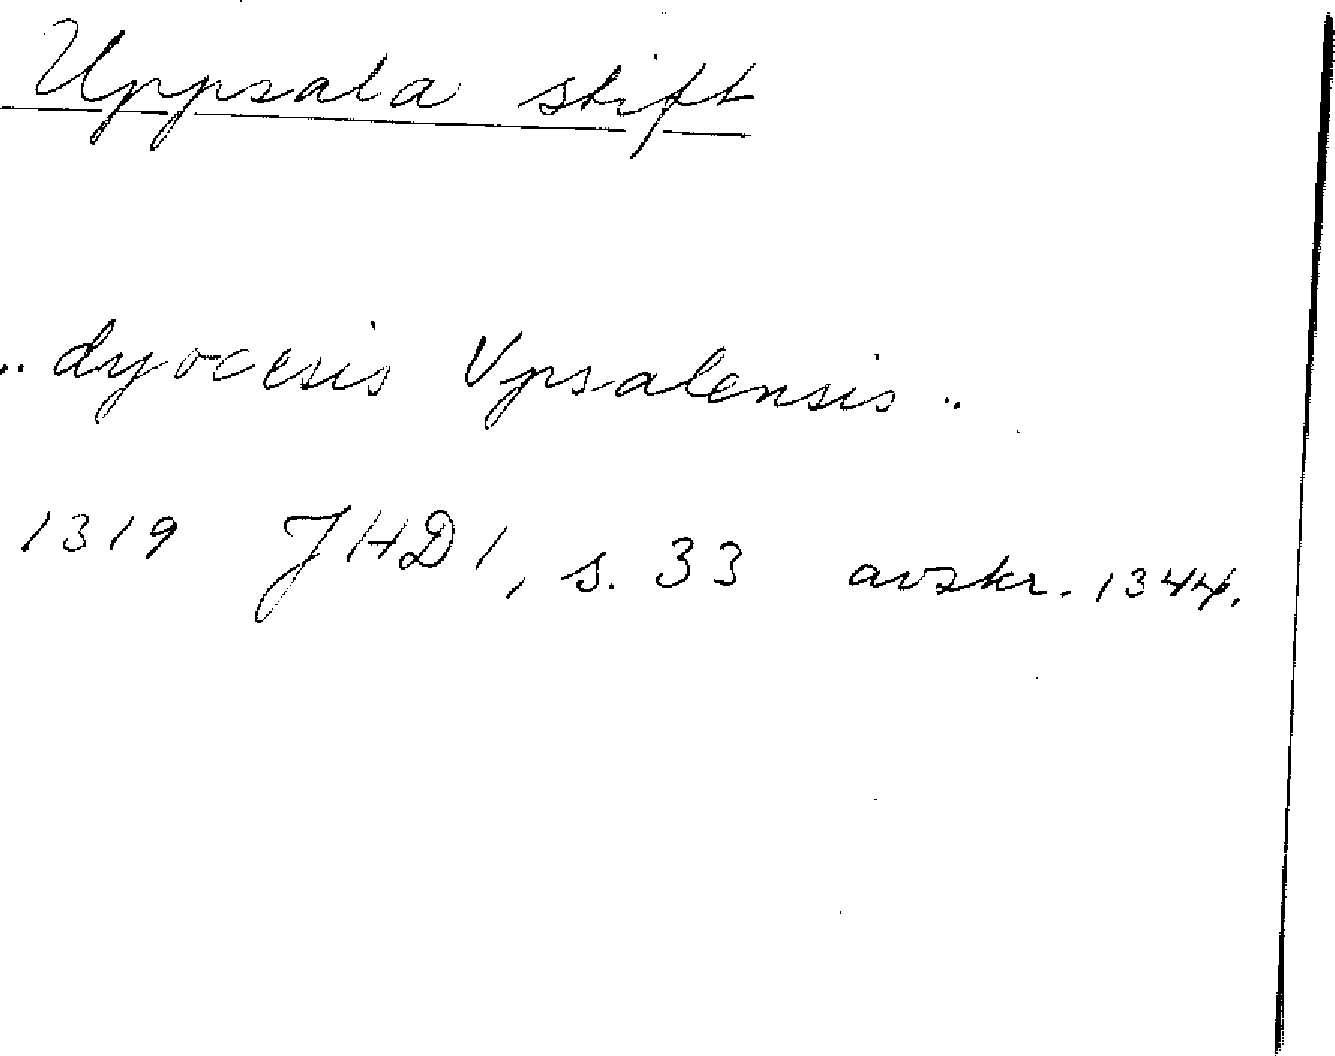 Uppsala stift
.. dyocesis Vpsalensis ..
1319 JHD 1, s. 33 avskr. 1344.